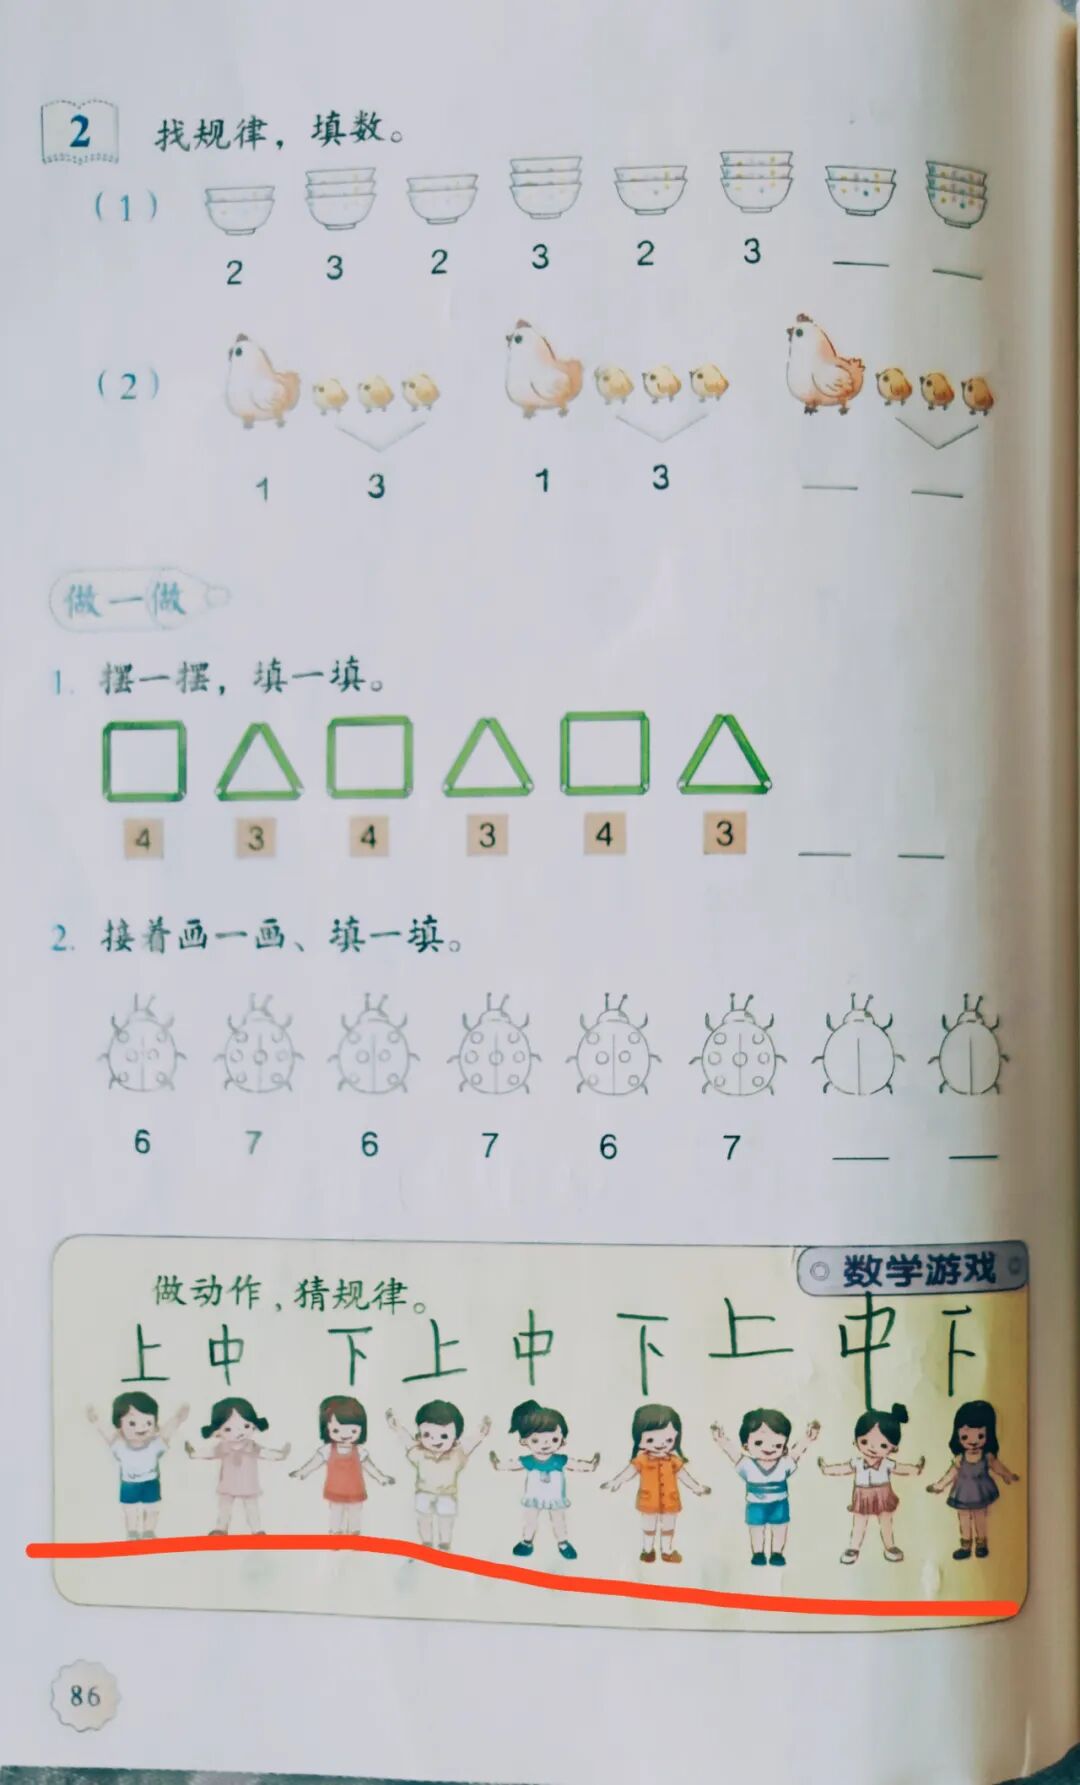 2 找规律，填数。
（1）
2 3 2 3 2 3
（2）
1 3 1 3
做一做
1. 摆一摆，填一填。
4 3 4 3 4 3
2. 接着画一画、填一填。
6 7 6 7 6 7
数学游戏
做动作，猜规律。
上 中 下 上 中 下 上 中 下
86